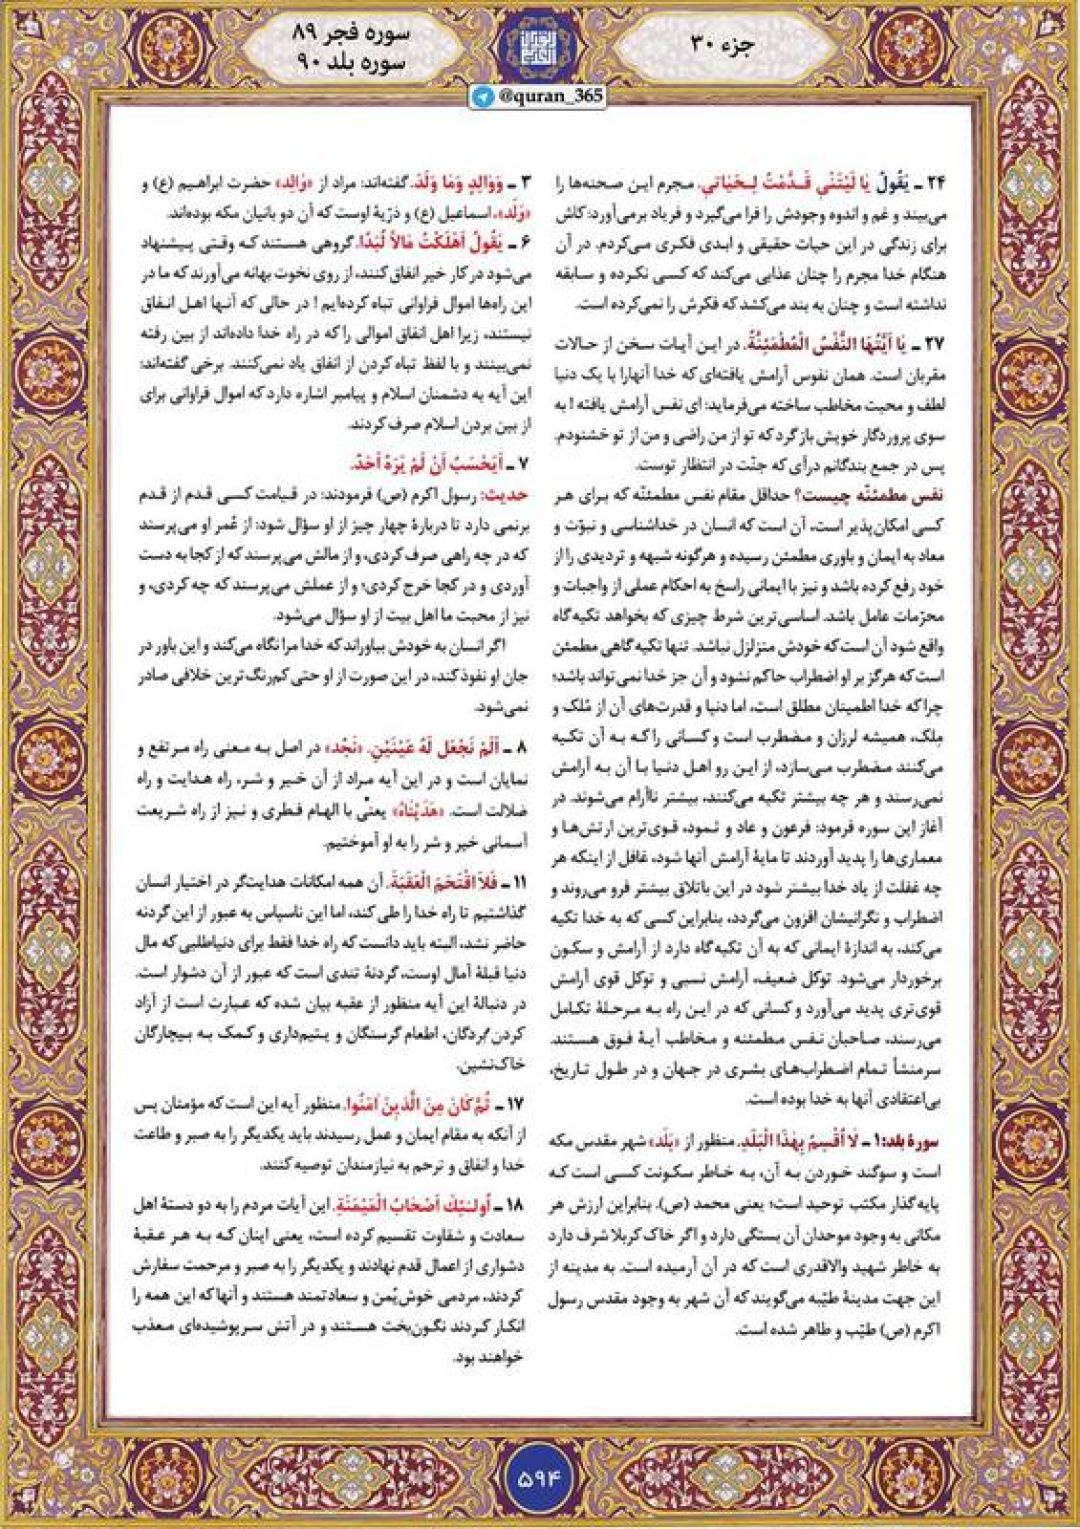 جزء ۳۰
سوره فجر ۸۹
سوره بلد ۹۰
@quran_365
۲۴ ـ یَقُولُ یَا لَیْتَنِي قَدَّمْتُ لِحَیَاتِي. مجرم این صحنه‌ها را
می‌بیند و غم و اندوه وجودش را فرا می‌گیرد و فریاد برمی‌آورد: کاش
برای زندگی در این حیات حقیقی و ابدی فکری می‌کردم. در آن
هنگام خدا مجرم را چنان عذابی می‌کند که کسی نکرده و سابقه
نداشته است و چنان به بند می‌کشد که فکرش را نمی‌کرده است.
۲۷ ـ یَا أَیَّتُهَا النَّفْسُ الْمُطْمَئِنَّةُ. در این آیات سخن از حالات
مقربان است. همان نفوس آرامش یافته‌ای که خدا آنهارا با یک دنیا
لطف و محبت مخاطب ساخته می‌فرماید: ای نفس آرامش یافته! به
سوی پروردگار خویش باز گرد که تو از من راضی و من از تو خشنودم.
پس در جمع بندگانم درآی که جنّت در انتظار توست.
نفس مطمئنّه چیست؟ حداقل مقام نفس مطمئنّه که برای هر
کسی امکان‌پذیر است، آن است که انسان در خداشناسی و نبوّت و
معاد به ایمان و باوری مطمئن رسیده و هرگونه شبهه و تردیدی را از
خود رفع کرده باشد و نیز با ایمانی راسخ به احکام عملی از واجبات و
محرّمات عامل باشد. اساسی‌ترین شرط چیزی که بخواهد تکیه‌گاه
واقع شود آن است که خودش متزلزل نباشد. تنها تکیه گاهی مطمئن
است که هرگز بر او اضطراب حاکم نشود و آن جز خدا نمی‌تواند باشد؛
چرا که خدا اطمینان مطلق است، اما دنیا و قدرت‌های آن از مُلک و
مِلک، همیشه لرزان و مضطرب است و کسانی را که به آن تکیه
می‌کنند مضطرب می‌سازد، از این رو اهل دنیا با آن به آرامش
نمی‌رسند و هر چه بیشتر تکیه می‌کنند، بیشتر ناآرام می‌شوند. در
آغاز این سوره فرمود: فرعون و عاد و ثمود، قوی‌ترین ارتش‌ها و
معماری‌ها را پدید آوردند تا مایهٔ آرامش آنها شود، غافل از اینکه هر
چه غفلت از یاد خدا بیشتر شود در این باتلاق بیشتر فرو می‌روند و
اضطراب و نگرانیشان افزون می‌گردد، بنابراین کسی که به خدا تکیه
می‌کند، به اندازهٔ ایمانی که به آن تکیه‌گاه دارد از آرامش و سکون
برخوردار می‌شود. توکل ضعیف، آرامش نسبی و توکل قوی آرامش
قوی‌تری پدید می‌آورد و کسانی که در این راه به مرحلهٔ تکامل
می‌رسند، صاحبان نفس مطمئنه و مخاطب آیهٔ فوق هستند.
سرمنشأ تمام اضطراب‌های بشری در جهان و در طول تاریخ،
بی‌اعتقادی آنها به خدا بوده است.
سورهٔ بلد: ۱ ـ لَا أُقْسِمُ بِهَذَا الْبَلَدِ. منظور از «بَلَد» شهر مقدس مکه
است و سوگند خوردن به آن، به خاطر سکونت کسی است که
پایه‌گذار مکتب توحید است؛ یعنی محمد (ص). بنابراین ارزش هر
مکانی به وجود موحدان آن بستگی دارد و اگر خاک کربلا شرف دارد
به خاطر شهید والاقدری است که در آن آرمیده است. به مدینه از
این جهت مدینهٔ طیّبه می‌گویند که آن شهر به وجود مقدس رسول
اکرم (ص) طیّب و طاهر شده است.
۳ ـ وَوَالِدٍ وَمَا وَلَدَ. گفته‌اند: مراد از «وَالِد» حضرت ابراهیم (ع) و
«وَلَد»، اسماعیل (ع) و ذرّیهٔ اوست که آن دو بانیان مکه بوده‌اند.
۶ ـ یَقُولُ أَهْلَکْتُ مَالًا لُبَدًا. گروهی هستند که وقتی پیشنهاد
می‌شود در کار خیر انفاق کنند، از روی نخوت بهانه می‌آورند که ما در
این راه‌ها اموال فراوانی تباه کرده‌ایم! در حالی که آنها اهل انفاق
نیستند، زیرا اهل انفاق اموالی را که در راه خدا داده‌اند از بین رفته
نمی‌بینند و با لفظ تباه کردن از انفاق یاد نمی‌کنند. برخی گفته‌اند:
این آیه به دشمنان اسلام و پیامبر اشاره دارد که اموال فراوانی برای
از بین بردن اسلام صرف کردند.
۷ ـ أَیَحْسَبُ أَنْ لَمْ یَرَهُ أَحَدٌ.
حدیث: رسول اکرم (ص) فرمودند: در قیامت کسی قدم از قدم
برنمی دارد تا دربارهٔ چهار چیز از او سؤال شود: از عُمر او می‌پرسند
که در چه راهی صرف کردی، و از مالش می‌پرسند که از کجا به دست
آوردی و در کجا خرج کردی؛ و از عملش می‌پرسند که چه کردی، و
نیز از محبت ما اهل بیت از او سؤال می‌شود.
اگر انسان به خودش بیاوراند که خدا مرا نگاه می‌کند و این باور در
جان او نفوذ کند، در این صورت از او حتی کم‌رنگ ترین خلافی صادر
نمی‌شود.
۸ ـ أَلَمْ نَجْعَلْ لَهُ عَیْنَیْنِ. «نَجْد» در اصل به معنی راه مرتفع و
نمایان است و در این آیه مراد از آن خیر و شر، راه هدایت و راه
ضلالت است. «هَدَیْنَاهُ» یعنی با الهام فطری و نیز از راه شریعت
آسمانی خیر و شر را به او آموختیم.
۱۱ ـ فَلَا اقْتَحَمَ الْعَقَبَةَ. آن همه امکانات هدایت‌گر در اختیار انسان
گذاشتیم تا راه خدا را طی کند، اما این ناسپاس به عبور از این گردنه
حاضر نشد، البته باید دانست که راه خدا فقط برای دنیاطلبی که مال
دنیا قبلهٔ آمال اوست، گردنهٔ تندی است که عبور از آن دشوار است.
در دنبالهٔ این آیه منظور از عقبه بیان شده که عبارت است از آزاد
کردن بردگان، اطعام گرسنگان و یتیم‌داری و کمک به بیچارگان
خاک‌نشین.
۱۷ ـ ثُمَّ کَانَ مِنَ الَّذِینَ آمَنُوا. منظور آیه این است که مؤمنان پس
از آنکه به مقام ایمان و عمل رسیدند باید یکدیگر را به صبر و طاعت
خدا و انفاق و ترحم به نیازمندان توصیه کنند.
۱۸ ـ أُولَئِكَ أَصْحَابُ الْمَیْمَنَةِ. این آیات مردم را به دو دستهٔ اهل
سعادت و شقاوت تقسیم کرده است، یعنی اینان که به هر عقبهٔ
دشواری از اعمال قدم نهادند و یکدیگر را به صبر و مرحمت سفارش
کردند، مردمی خوش‌یُمن و سعادتمند هستند و آنها که این همه را
انکار کردند نگون‌بخت هستند و در آتش سرپوشیده‌ای معذب
خواهند بود.
۵۹۴